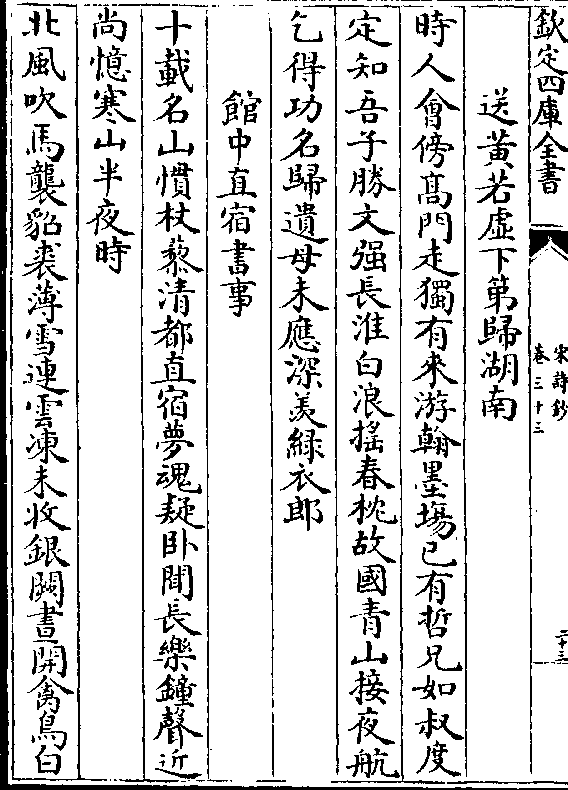 欽定四庫全書
宋詩鈔
卷三十三
二十三
送黄若虚下第歸湖南
時人會傍髙門走獨有來游翰墨塲已有哲兄如叔度
定知吾子勝文强長淮白浪揺春枕故國青山接夜航
乞得功名歸遺母未應深羨緑衣郎
館中直宿書事
十載名山慣杖藜清都直宿夢魂疑卧聞長樂鐘聲近
尚憶寒山半夜時
北風吹馬襲貂裘薄雪連雲凍未收銀闕晝開禽鳥白